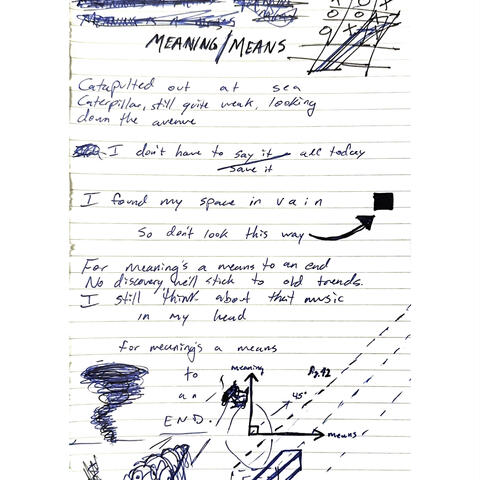 MEANING/MEANS
Catapulted out at sea
Caterpillar, still quite weak, looking
down the avenue
I don't have to say it all today
save it
I found my space in vain
So don't look this way
For meaning's a means to an end
No discovery we'll stick to old trends.
I still think about that music
in my head
for meaning's a means
to
an
END.
meaning
Pg. 42
45°
means